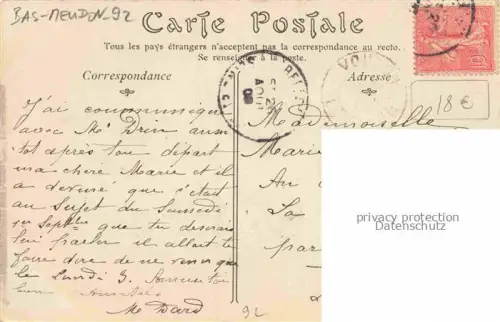 BAS-MEUDON_92
Carte Postale
Tous les pays étrangers n'acceptent pas la correspondance au recto.
Se renseigner à la poste.
Correspondance
Adresse
18 €
J'ai communiqué
avec Me Drin aussi
tot après ton départ
ma chère Marie et il
a deviné que c'était
au Sujet du Samedi
1er Septbre que tu desirais
lui parler il allait te
faire dire de ne venir que
le Lundi 3.
Amitiés
Me Dard
Mademoiselle
Marie
Au
La
par
privacy protection
Datenschutz
92